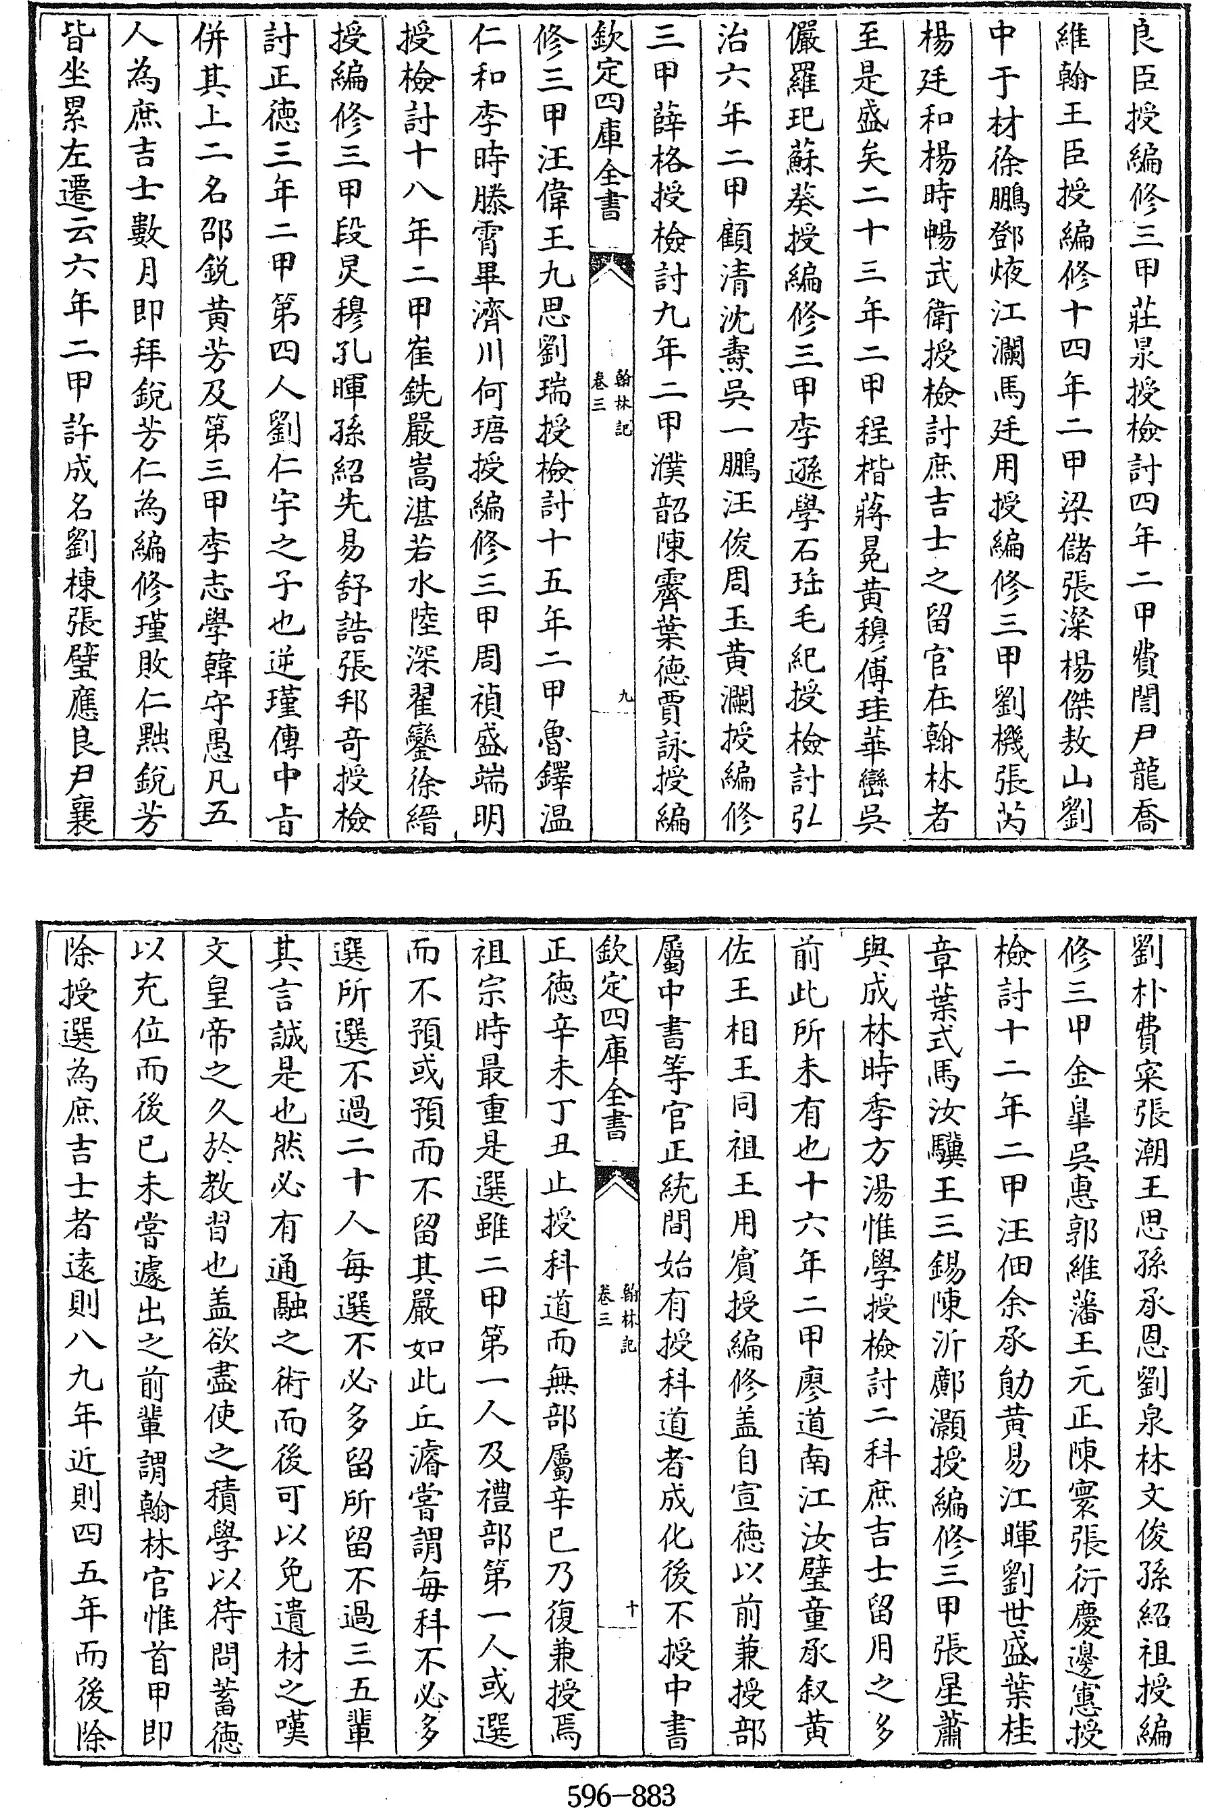 良臣授編修三甲莊泉授檢討四年二甲費誾尹龍喬
維翰王臣授編修十四年二甲梁儲張濚楊傑敖山劉
中于材徐鵬鄧焲江瀾馬廷用授編修三甲劉機張芮
楊廷和楊時暢武衛授檢討庶吉士之留官在翰林者
至是盛矣二十三年二甲程楷蔣冕黃穆傅珪華巒吳
儼羅玘蘇葵授編修三甲李遜學石珤毛紀授檢討弘
治六年二甲顧清沈燾吳一鵬汪俊周玉黃瀾授編修
三甲薛格授檢討九年二甲濮韶陳霽葉德賈詠授編
欽定四庫全書
翰林記
卷三
九
修三甲汪偉王九思劉瑞授檢討十五年二甲魯鐸溫
仁和李時滕霄畢濟川何瑭授編修三甲周禎盛端明
授檢討十八年二甲崔銑嚴嵩湛若水陸深翟鑾徐縉
授編修三甲段炅穆孔暉孫紹先易舒誥張邦奇授檢
討正德三年二甲第四人劉仁宇之子也逆瑾傳中旨
併其上二名邵銳黃芳及第三甲李志學韓守愚凡五
人為庶吉士數月即拜銳芳仁為編修瑾敗仁黜銳芳
皆坐累左遷云六年二甲許成名劉棟張璧應良尹襄
劉朴費寀張潮王思孫承恩劉泉林文俊孫紹祖授編
修三甲金皐吳惠郭維藩王元正陳寰張衍慶邊憲授
檢討十二年二甲汪佃余承勛黃易江暉劉世盛葉桂
章葉式馬汝驥王三錫陳沂鄺灝授編修三甲張星蕭
與成林時季方湯惟學授檢討二科庶吉士留用之多
前此所未有也十六年二甲廖道南江汝璧童承叙黃
佐王相王同祖王用賓授編修盖自宣德以前兼授部
屬中書等官正統間始有授科道者成化後不授中書
欽定四庫全書
翰林記
卷三
十
正德辛未丁丑止授科道而無部屬辛巳乃復兼授焉
祖宗時最重是選雖二甲第一人及禮部第一人或選
而不預或預而不留其嚴如此丘濬嘗謂每科不必多
選所選不過二十人每選不必多留所留不過三五輩
其言誠是也然必有通融之術而後可以免遺材之嘆
文皇帝之久於教習也盖欲盡使之積學以待問蓄德
以充位而後已未嘗遽出之前輩謂翰林官惟首甲即
除授選為庶吉士者遠則八九年近則四五年而後除
596-883